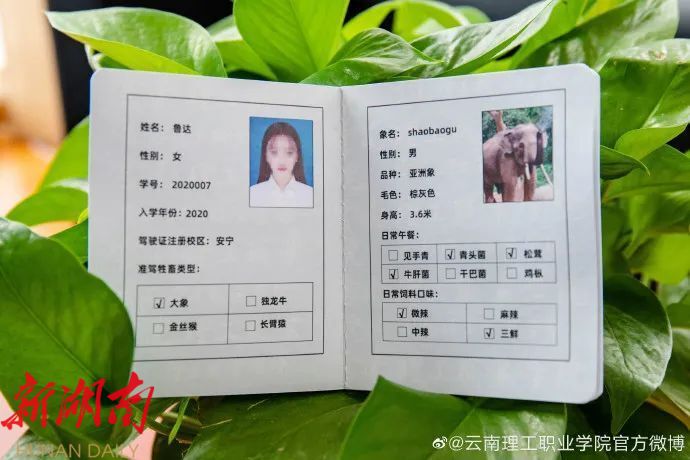 姓名： 鲁达
性别： 女
学号： 2020007
入学年份：2020
驾驶证注册校区：安宁
准驾牲畜类型：
√ 大象 □ 独龙牛
□ 金丝猴 □ 长臂猿
象名： shaobaogu
性别： 男
品种： 亚洲象
毛色： 棕灰色
身高： 3.6米
日常午餐：
□ 见手青 √ 青头菌 √ 松茸
√ 牛肝菌 □ 干巴菌 □ 鸡枞
日常饲料口味：
√ 微辣 □ 麻辣
□ 中辣 √ 三鲜
新湖南
HUNAN DAILY
@云南理工职业学院官方微博